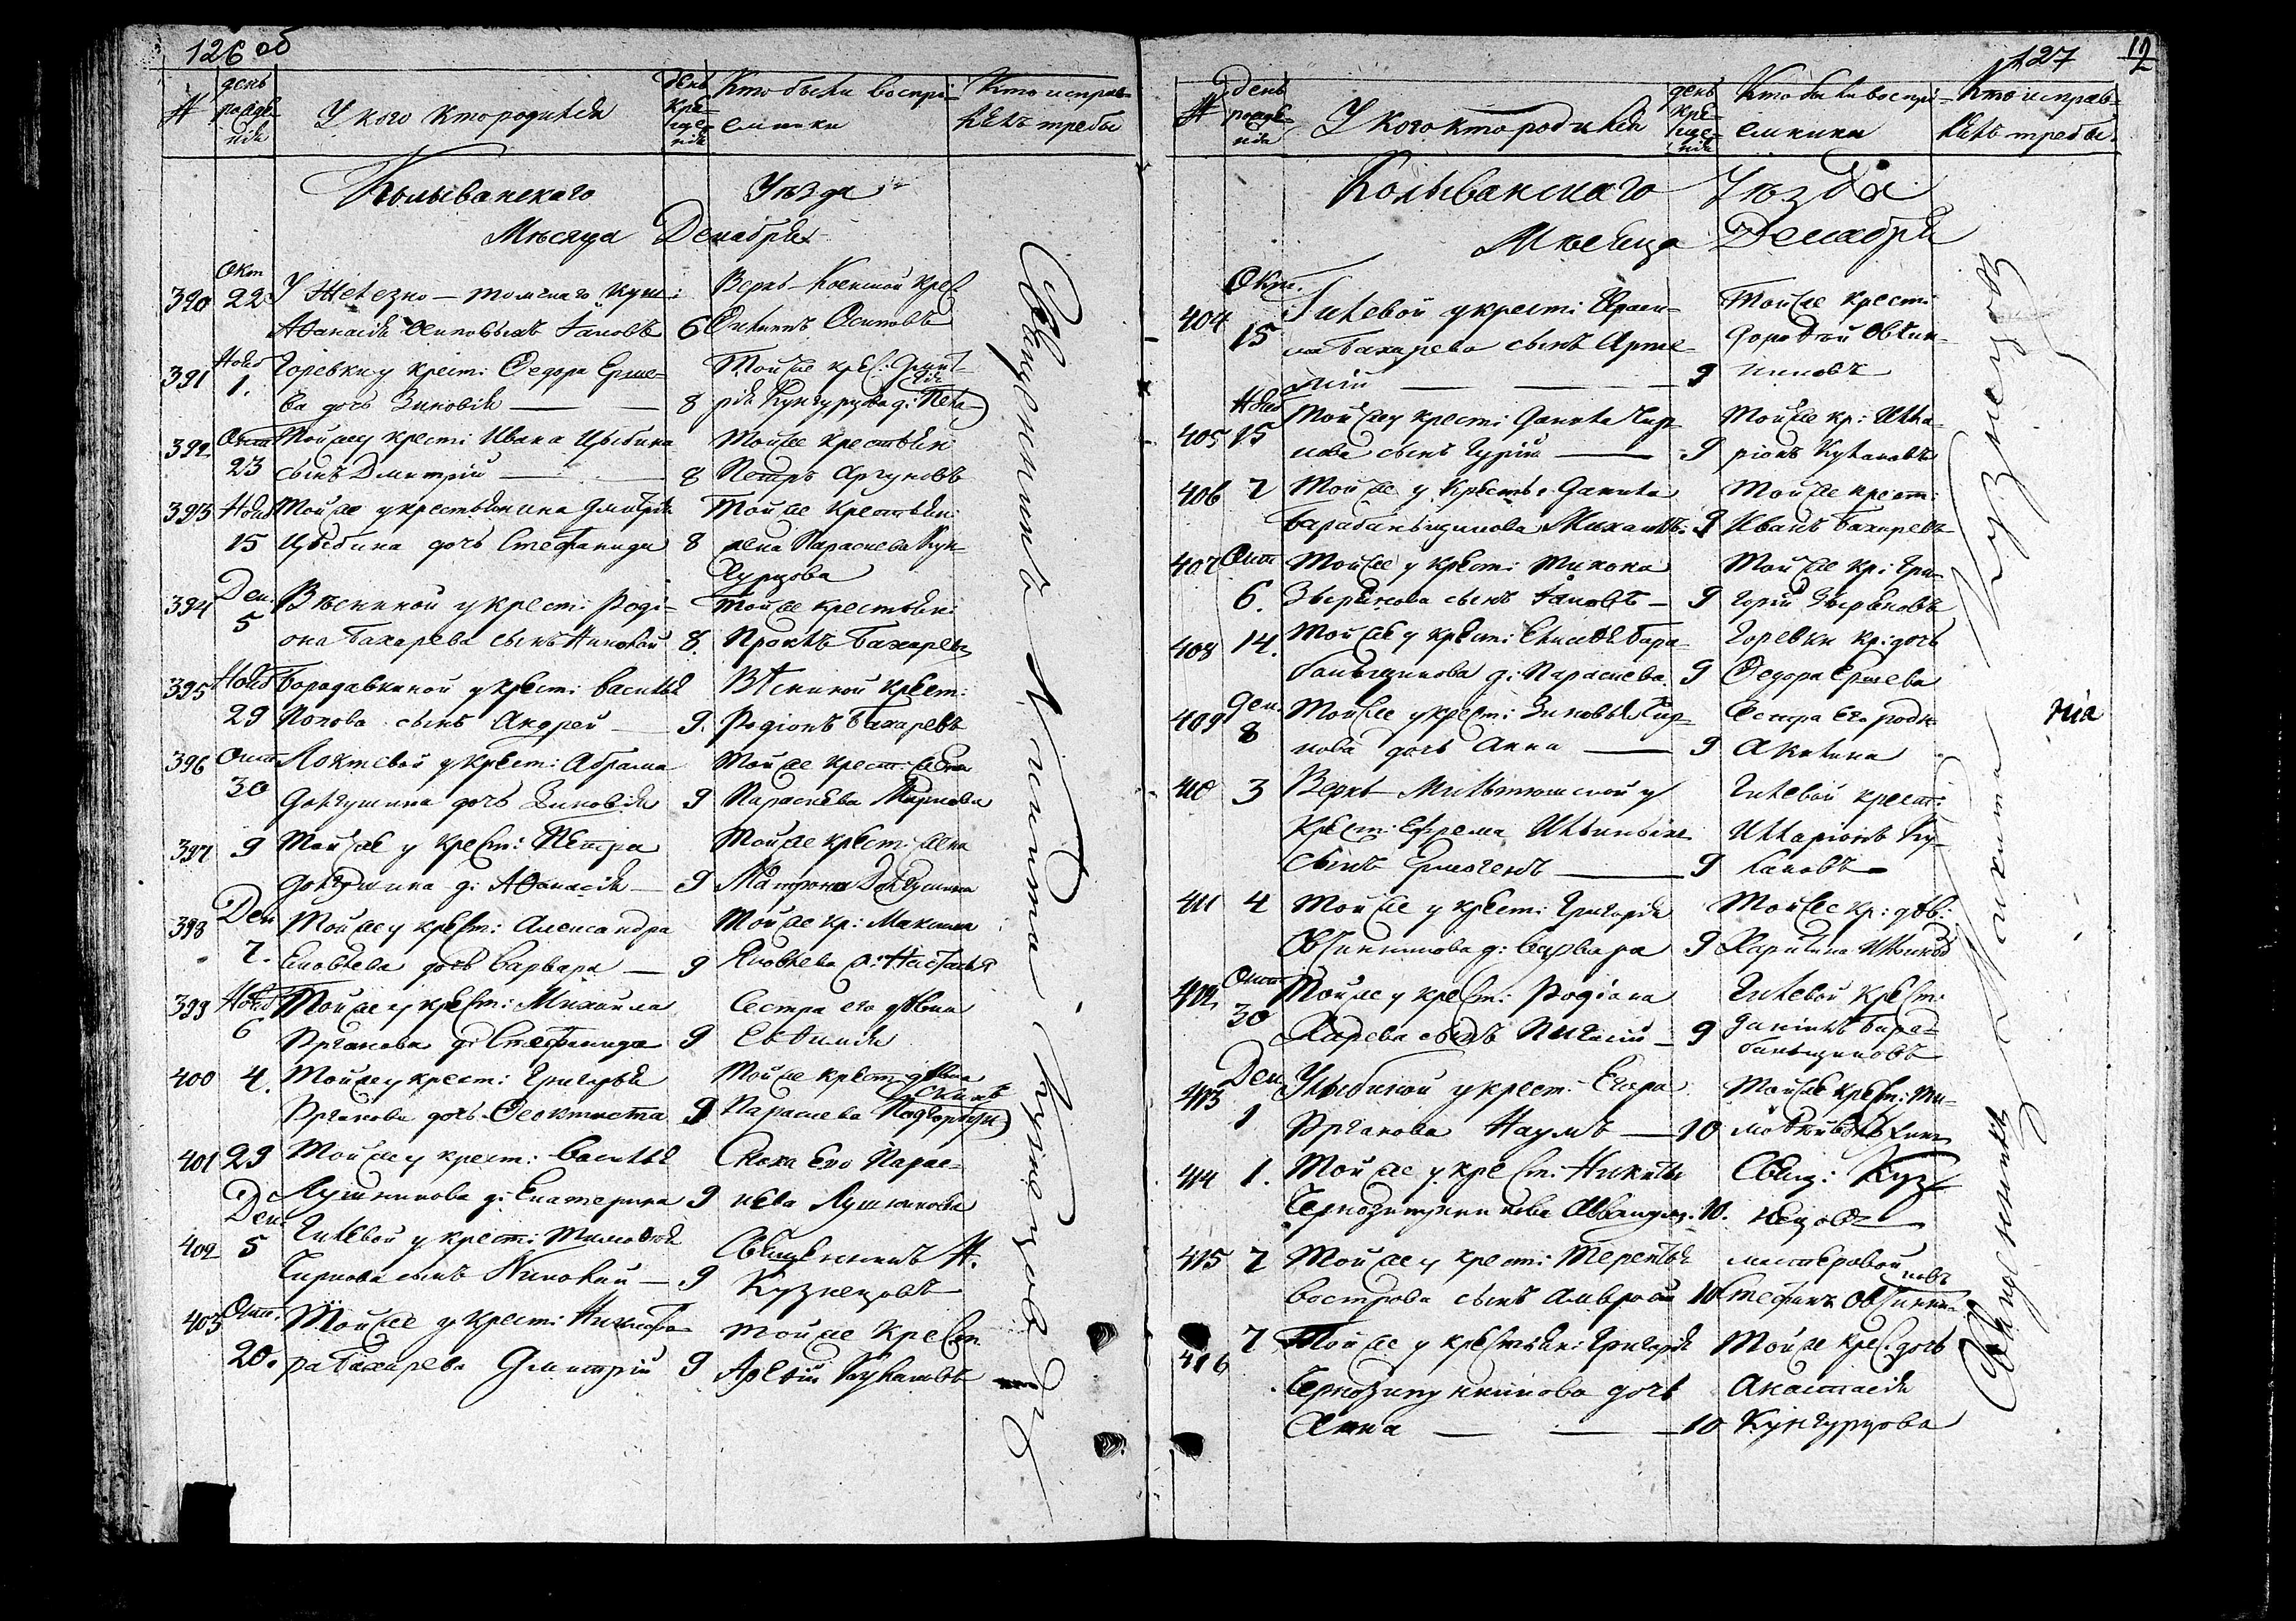 126 об
№ день рожде- нiя У кого кто родился день кре- ще- нiя Кто были воспрi- емники Кто исправ- лялъ требы
Колыванскаго Уѣзда
Мѣсяца Декабря
390 Окт 22 У Железно-томскаго куп:
Аѳанасiя Осиповыхъ Iаковъ 6
Верхъ-Коенской крес
Осиповъ
391 Нояб 1. Горевки у крест: Ѳедора Ерше-
ва дочь Зиновiя — 8
Той же крес: Дмит-
рiя Кунгурцова д: Пела-
гiя
392 Окт 23 Той же у крест: Ивана Цыбина
сынъ Дмитрiй — 8
Той же крестьян:
Петръ Аргуновъ
393 Нояб 15 Той же у крестьянина Дмитрiя
Цыбина дочь Стефанида 8
Той же крестьян:
жена Параскева Кун-
гурцова
394 Дек. 5 Вѣсниной у крест: Родi-
она Бахарева сынъ Николай 8.
Той же крестьян:
Проклъ Бахаревъ
395 Нояб 29 Бородавкиной у крест: Василья
Попова сынъ Андрей — 9.
Вѣсниной крест:
Родiонъ Бахаревъ
396 Окт 30 Локтевой у крест: Абрама
Долгушина дочь Зиновiя 9
Той же крест: жена
Параскева
397 9 Той же у крест: Петра
Долгушина д: Аѳанасiя — 9
Той же крест: жена
Матрона Долгушина
398 Дек 7. Той же у крест: Александра
Яковлева дочь Варвара — 9
Той же кр: Максима
Яковлева д: Настасья
399 Нояб 6 Той же у крест: Михайла
Арганова д: Стефанида 9
Сестра его дѣвка
Евѳимiя
400 4. Той же у крест: Григорья
Арганова дочь Ѳеоктиста 9
Той же крест: дѣвка
Параскева
401 29 Той же у крест: Василья
Лушникова д: Екатерина 9
Сноха его Парас-
кева Лушникова
402 Дек. 5 Гилевой у крест: Тимоѳея
Чиркова сынъ Николай — 9
Священникъ Н.
Кузнецовъ
403 Окт. 20. Той же у крест: Никифо-
ра Бахарева Дмитрiй 9
Той же крест.
Арѳiй Кулаковъ
Священникъ Никита Кузнецовъ
127
12
№ день рожде- нiя У кого кто родился день кре- ще- нiя Кто были воспрi- емники Кто исправ- лялъ требы
Колыванскаго Уѣзда
Мѣсяца Декабря
404 Окт. 15 Гилевой у крест:
Бахарева сынъ Арте-
мiй — 9
Той же крест:
Дороѳей Овчин-
никовъ
405 Нояб 15 Той же у крест: Данила Чир-
кова сынъ Гурiй — 9
Той же кр: Илла-
рiонъ Кулаковъ
406 7 Той же у крестья: Данила
Барабаньщикова Михаилъ: 9
Той же крест:
Иванъ Бахаревъ
407 Окт 6. Той же у крест: Тихона
Зырянова сынъ Iаковъ — 9
Той же кр: Гри-
горiй Зыряновъ
408 14. Той же у крест: Елисея Бара-
баньщикова д: Параскева. 9
Горевки кр: дочь
Ѳедора Ершева
409 Дек. 8 Той же у крест: Зиновья Чир-
кова дочь Анна — 9
Сестра его родн.
Акилина
410 3 Верхъ-Мильтюшской у
крест: Ефрема
сынъ Ермогенъ — 9
Гилевой крест:
Илларiонъ Ку-
лаковъ
411 4 Той же у крест: Григорiя
Овчинникова д: Варвара 9
Той же кр: дѣв:
412 Окт 30 Той же у крест: Родiона
Харева сынъ — 9
Гилевой крест:
Данiилъ Бара-
баньщиковъ
413 Дек 1 Улыбиной у крест: Егора
Арганова Наумъ — 10
Той же крест: Ти-
моѳей
414 1. Той же у крест: Никиты
10.
Свящ: Куз-
нецовъ
415 7 Той же у крест: Терентья
Вострова сынъ Амвросiй 10
Стефанъ Овчинни-
ковъ
416 7 Той же у крестьян: Григорiя
дочь
Анна — 10
Той же крес: дочь
Анастасiя
Кунгурцова
Священникъ Никита Кузнецовъ
нiя